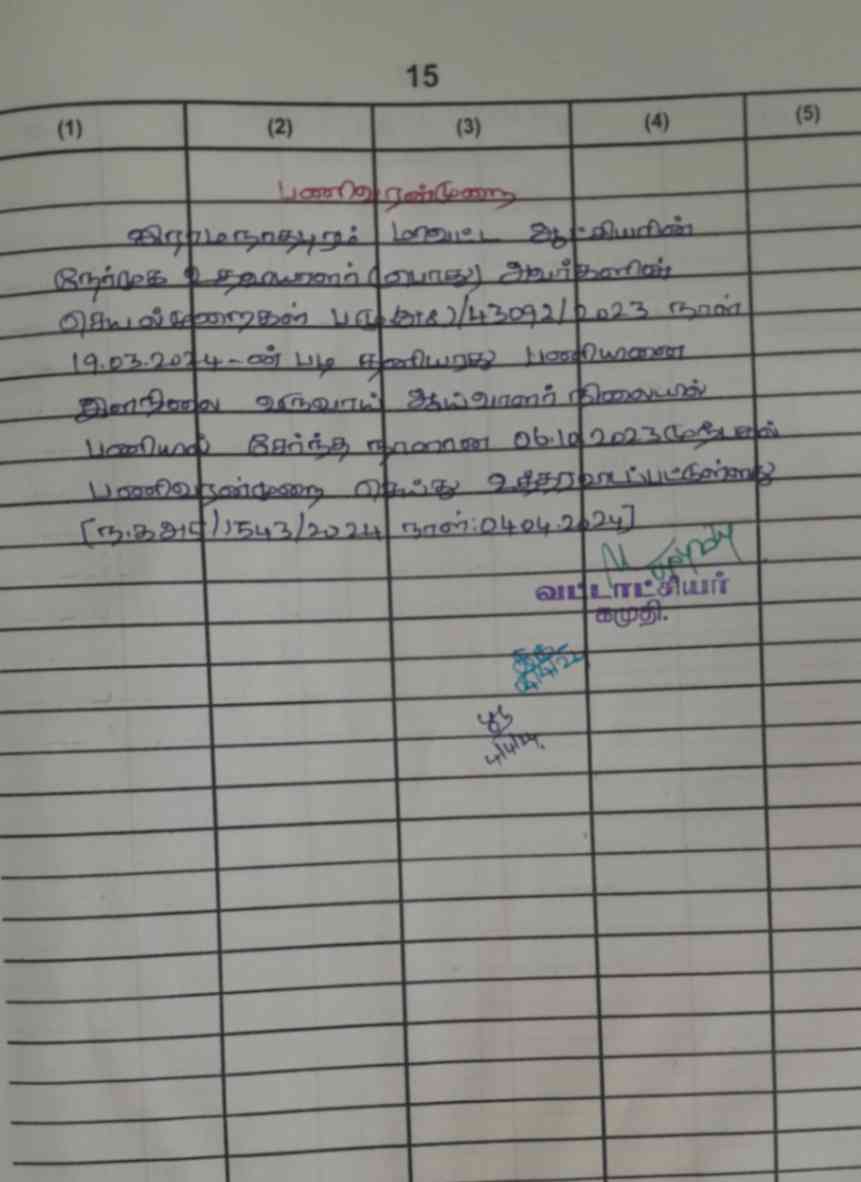 15
(1) (2) (3) (4) (5)
பணிவரன்முறை
இராமநாதபுரம் மாவட்ட ஆட்சியரின்
நேர்முக உதவியாளர் (பொது) அவர்களின்
செயல்முறைகள் /43092/2023 நாள்
19.03.2024-ன் படி
இளநிலை வருவாய் ஆய்வாளர் நிலையில்
பணியில் சேர்ந்த நாளான 06.10.2023 முதல்
பணிவரன்முறை செய்து உத்தரவிடப்பட்டுள்ளது
/1543/2024 நாள்:04.04.2024]
வட்டாட்சியர்
கமுதி.
4/4/24